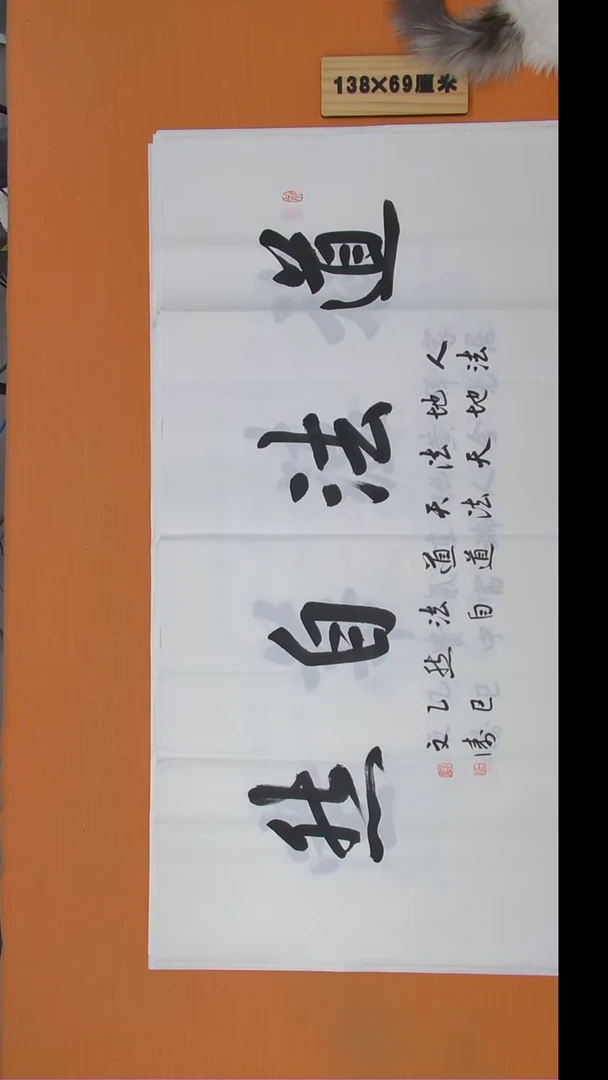 138×69厘米
道法自然
人法
地地
法天
天法
道道
法自
然
乙巳
文涛